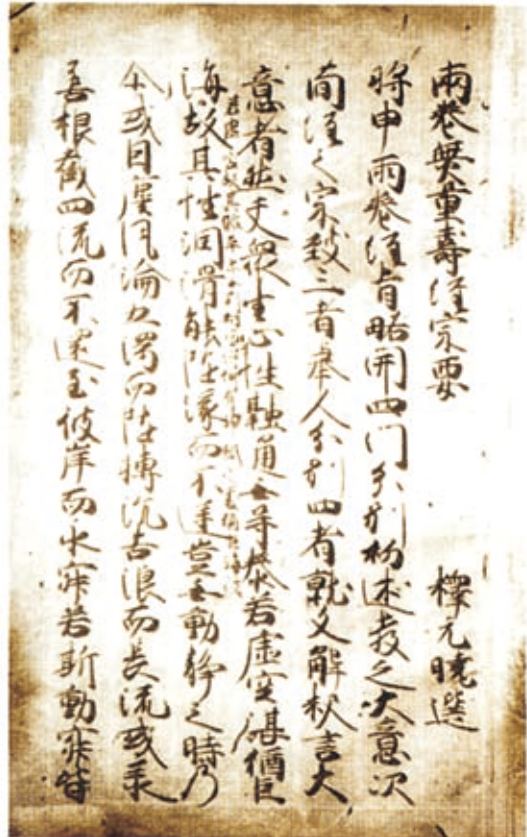 兩卷无量壽經宗要 釋元曉選
將申兩卷經旨略開四門分別初述敎之大意次
簡經之宗致三者擧人分別四者就文解釋言大
意者然夫衆生心性融通無㝵泰若虛空湛猶巨
若虛空故其體平等
海故其性潤滑能隨緣而不逆豈無動靜之時乃
尒或因塵風淪五濁而隨轉沉苦浪而長流或承
善根截四流而不還至彼岸而永寂若斯動寂皆